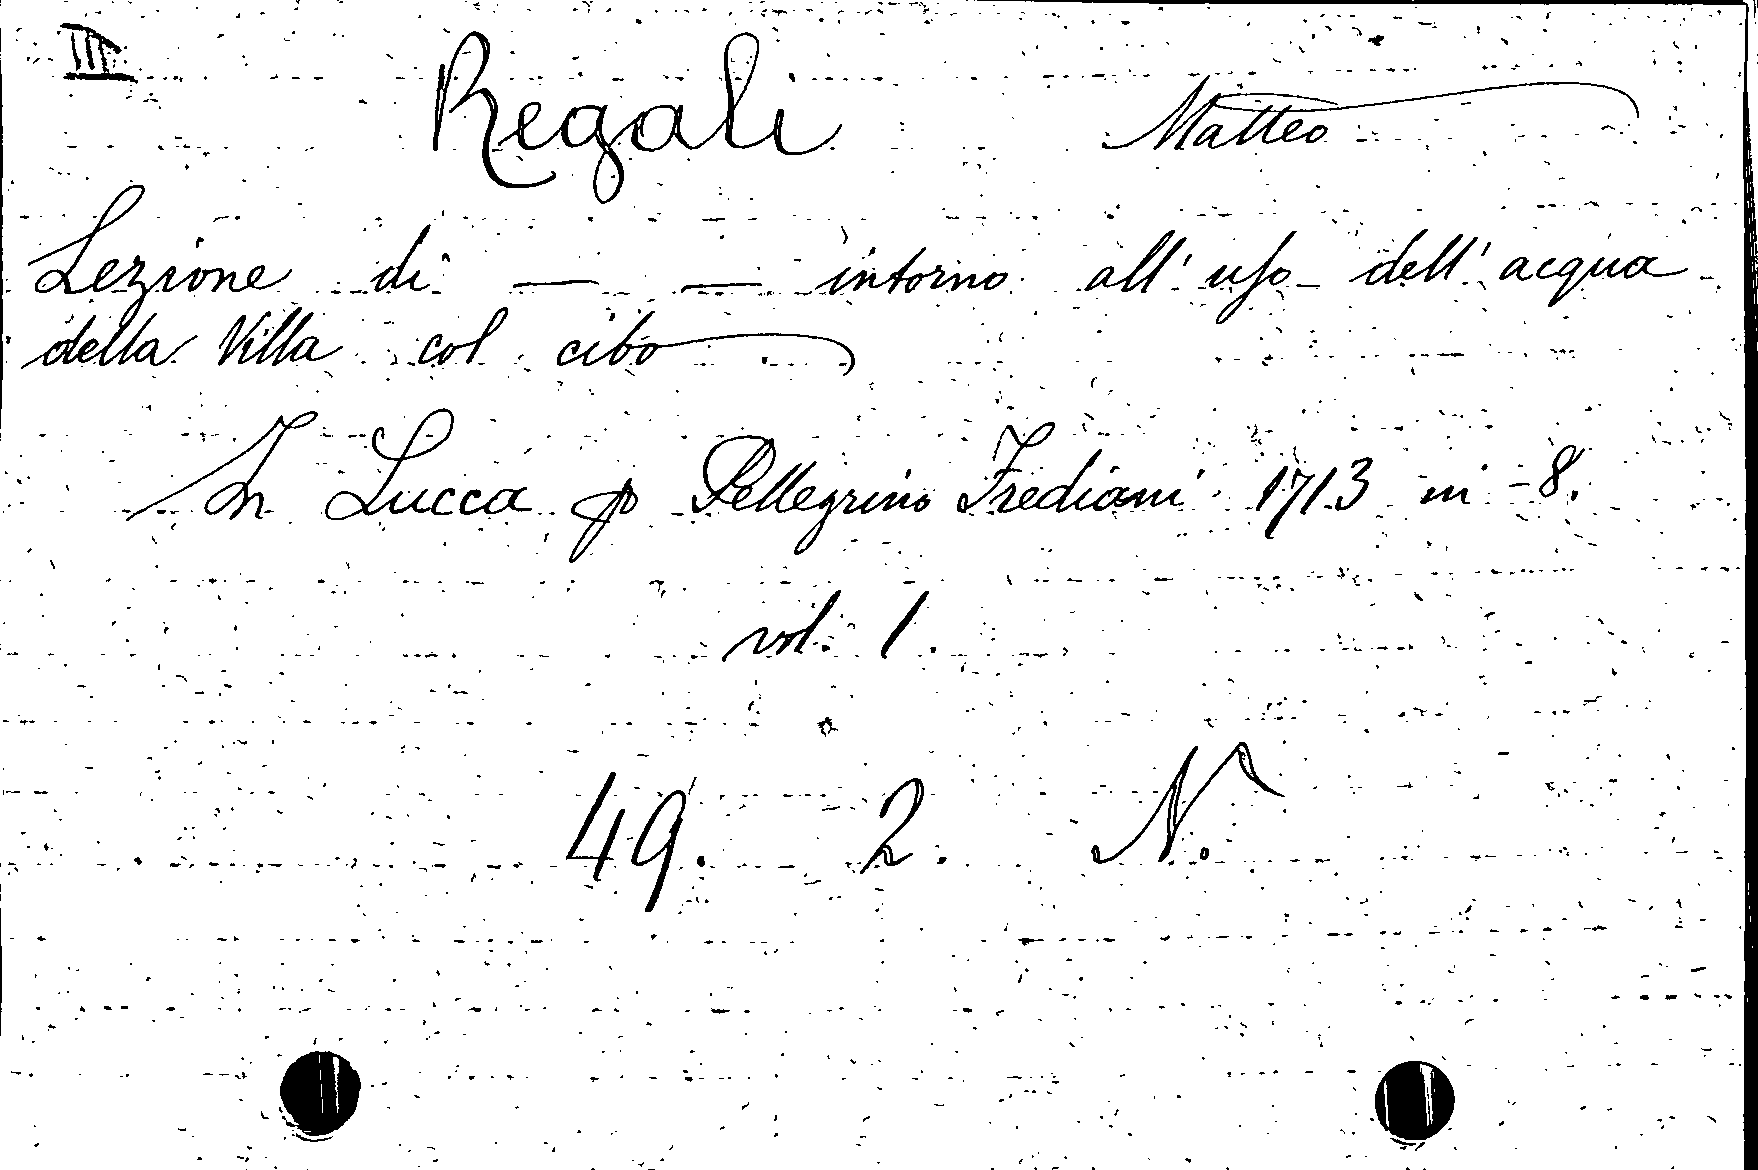 III
Regali Matteo
Lezione di — — intorno all' uſo dell' acqua
della Villa col cibo
In Lucca p Pellegrino Frediani 1713 in -8.
vol. 1.
49. 2. N.